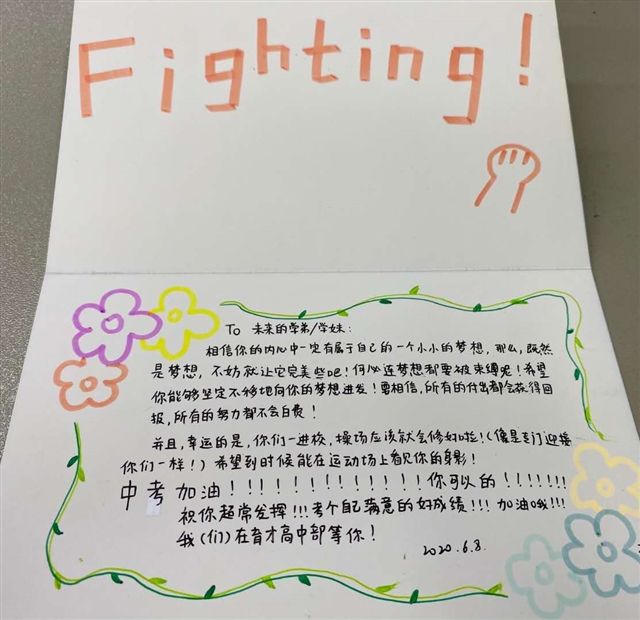 Fighting!
To 未来的学弟/学妹:
相信你的内心中一定有属于自己的一个小小的梦想,那么,既然
是梦想,不妨就让它完美些吧!何必连梦想都要被束缚呢!希望
你能够坚定不移地向你的梦想进发!要相信,所有的付出都会获得回
报,所有的努力都不会白费!
并且,幸运的是,你们一进校,操场应该就会修好啦!(像是专门迎接
你们一样!)希望到时候能在运动场上看见你的身影!
中考 加油!!!!!!!!!!!!!你可以的!!!!!!!
祝你超常发挥!!!考个自己满意的好成绩!!!加油哦!!!
我(们)在育才高中部等你!
2020.6.8.